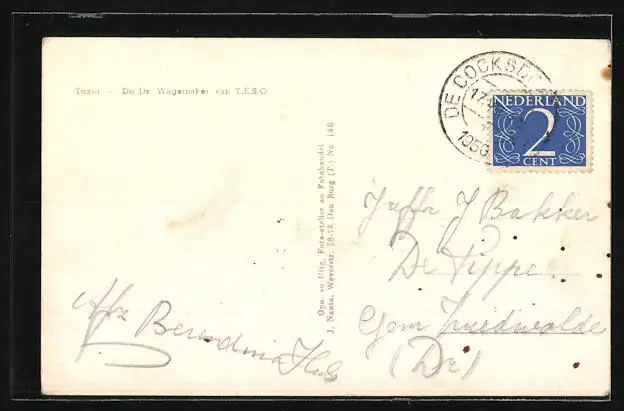 Texel — De Dr. Wagemaker van T.E.S.O.
Opn. en Uitg. Foto-atelier en Fotohandel
J. Nauta, Weverstr. 76-78 Den Burg (T.) No 148
DE COCKSDO
1950
NEDERLAND
2
CENT
Juffr J Bakker
De Pippe
Gem Zuidwolde
(Dr)
Afz Berendina